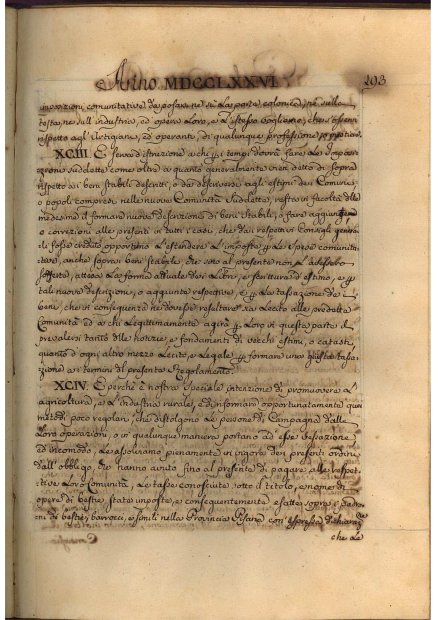 Anno MDCCLXXVI. 203
imposizioni comunitative da posarsi nè su la parte colonica, nè sulla
testa, ne sull'industrie, ed opere Loro, e L'istesso vogliamo, che s'osservi
rispetto agl'Artigiani, ed operanti, di qualunque professione,
XCIII. E serva d'istruzione a chi pro tempore dovrà fare Le Impo=
zione suddette come oltre a quanto generalmente vien detto di sopra
rispetto ai beni stabili descritti, o da descriversi agli estimi dei Comuni,
o popoli compresi nelle nuove Comunità suddette, resterà in facoltà delle
medesime il formare nuove descrizioni di beni stabili, o fare aggiunte
o correzioni alle presenti in tutti i casi, che dai respettivi Consigli genera=
li fosse creduto opportuno L'estendere Le imposte per Le spese comunita=
tive, anche sopra i beni stabili, che sino al presente non L'abbino
sofferte, attesa La forma attuale dei Libri, e scritture d'estimo, e per
tali nuove descrizioni, o aggiunte respettive, e per La tassazione dei
beni, che in conseguenza ne dovesse resultare sia Lecito alle predette
Comunità ed a chi Legittimamente agirà per Loro in questa parte il
prevalersi tanto delle notizie, e fondamenti di vecchi estimi, o catasti,
quanto d'ogni altro mezzo Lecito, e Legale per formare una giusta tassa=
zione a i termini del presente Regolamento.
XCIV. E perchè è nostra speciale intenzione di promuovere L'
agricoltura, e L'industria rurale, ed informare opportunamente quei
metodi poco regolari, che distolgono Le persone di Campagna dalle
Loro operazioni, o in qualunque maniera portano ad esse vessazione
ed incomodo, Le assolviamo pienamente in vigore dei presenti ordini
dall'obbligo, che hanno avuto fino al presente di pagare alle respet=
tive Loro Comunità, Le tasse conosciute sotto il titolo, e nome di
opere di bestie, state imposte, e conseguentemente esatte sopra i padro=
ni di bestie, barrocci, e simili nella Provincia Pisana con espressa dichiaraz.ne
che Le